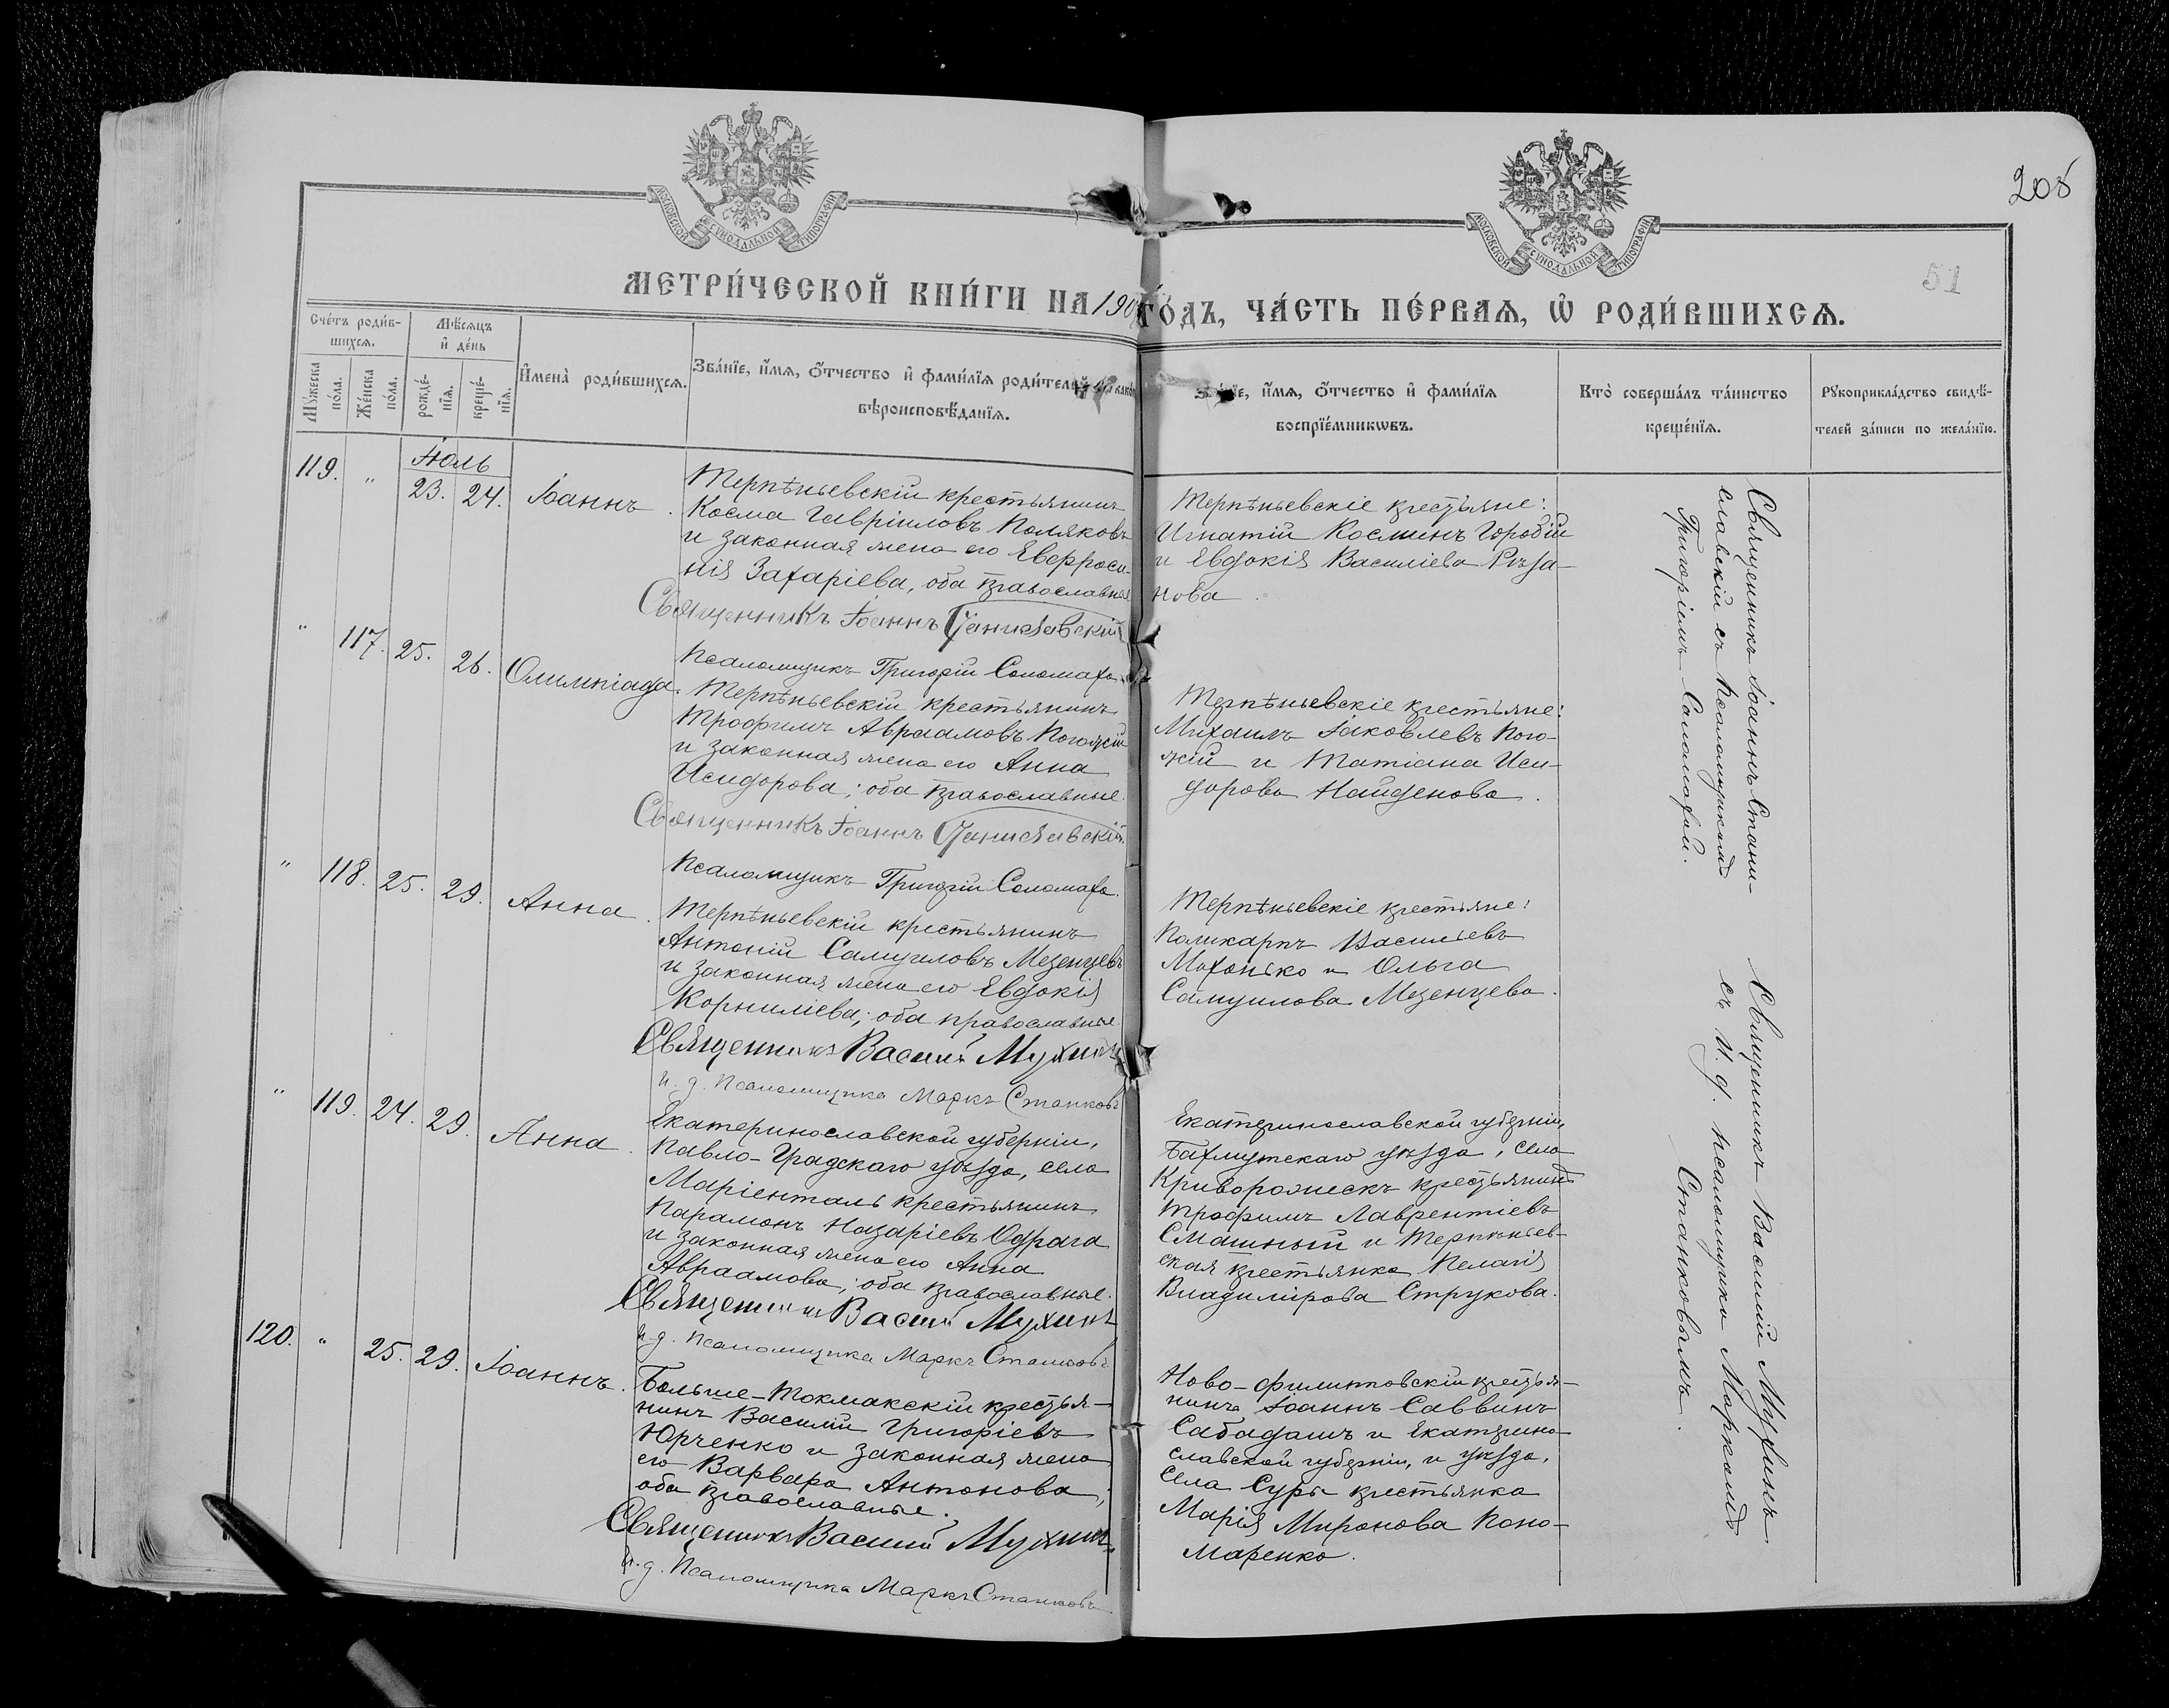 МОСКОВСКОЙ СУНОДАЛЬНОЙ ТИПОГРАФІИ
МОСКОВСКОЙ СУНОДАЛЬНОЙ ТИПОГРАФІИ
208
51
МЕТРИ́ЧЕСКОЙ КНИ́ГИ НА 190 ГО́ДЪ, ЧА́СТЬ ПЕ́РВАЯ, Ѡ РОДИ́ВШИХСЯ.
Сче́тъ роди́в-
шихся.
Мѣ́сяцъ
и҆ де́нь
Му́жеска
по́ла.
Же́нска
по́ла.
рожде́-
нїя.
креще́-
нїя.
И҆мена̀ роди́вшихся.
Зва́нїе, и҆́мя, ѻ҆́тчество и҆ фами́лїя роди́телей
вѣроисповѣ́данїя.
Зва́нїе, и҆́мя, ѻ҆́тчество и҆ фами́лїя
воспрїе́мникѡвъ.
Кто̀ соверша́лъ та́инство
креще́нїя.
Рꙋкоприкла́дство свидѣ́-
телей за́писи по жела́нїю.
119. " Іюль 23. 24. Іоаннъ.
Терпѣньевскій крестьянинъ
Косма Гавріиловъ Поляковъ
и законная жена его Евфроси-
нія Захаріева, оба православные
Священникъ Іоаннъ Станиславскій
Псаломщикъ Григорій Соломаха.
Терпѣньевскіе крестьяне:
Игнатій Косминъ Горобій
и Евдокія Василіева Рѣза-
нова.
Священникъ Іоаннъ Стани-
славскій съ псаломщикомъ
Григоріемъ Саломахой.
" 117. 25. 26. Олимпіада.
Терпѣньевскій крестьянинъ
Трофимъ Авраамовъ Погожій
и законная жена его Анна
Исидорова; оба православные.
Священникъ Іоаннъ Станиславскій
Псаломщикъ Григорій Соломаха.
Терпѣньевскіе крестьяне:
Михаилъ Іаковлевъ Пого-
жій и Татіана Иси-
дорова Найденова.
" 118. 25. 29. Анна.
Терпѣньевскій крестьянинъ
Антоній Самуиловъ Мезенцевъ
и законная жена его Евдокія
Корниліева; оба православные
Священникъ Василій Мухинъ
и. д. Псаломщика Маркъ Станковъ
Терпѣньевскіе крестьяне:
Поликарпъ Васильевъ
Махонько и Ольга
Самуилова Мезенцева.
Священникъ Василій Мухинъ
съ и. д. псаломщика Маркомъ
Станковымъ.
" 119. 24. 29. Анна.
Екатеринославской губерніи,
Павло-Градскаго уѣзда, села
Маріенталь крестьянинъ
Парамонъ Назаріевъ Одрага
и законная жена его Анна
Авраамова; оба православные.
Священникъ Василій Мухинъ
и. д. Псаломщика Маркъ Станковъ
Екатеринославской губерніи,
Бахмутскаго уѣзда, села
Криворожскъ крестьянинъ
Трофимъ Лаврентіевъ
Смашный и Терпѣньев-
ская крестьянка Пелагія
Владимірова Струкова.
120. " 25. 29. Іоаннъ.
Больше-Токмакскій крестья-
нинъ Василій Григоріевъ
Юрченко и законная жена
его Варвара Антонова,
оба православные.
Священникъ Василій Мухинъ
и. д. Псаломщика Маркъ Станковъ
Ново-филиповскій крестья-
нинъ Іоаннъ Саввинъ
Сабадашъ и Екатерино-
славской губерніи, и уѣзда,
села Суры крестьянка
Марія Миронова Поно-
маренко.